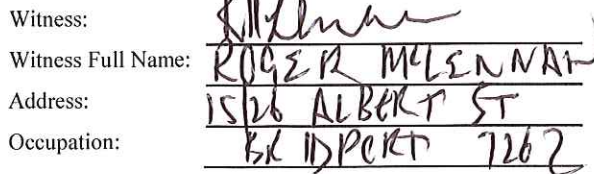 Witness:
Witness Full Name: ROGER MCLENNAN
Address: 15/26 ALBERT ST
Occupation: BRIDPORT 7262